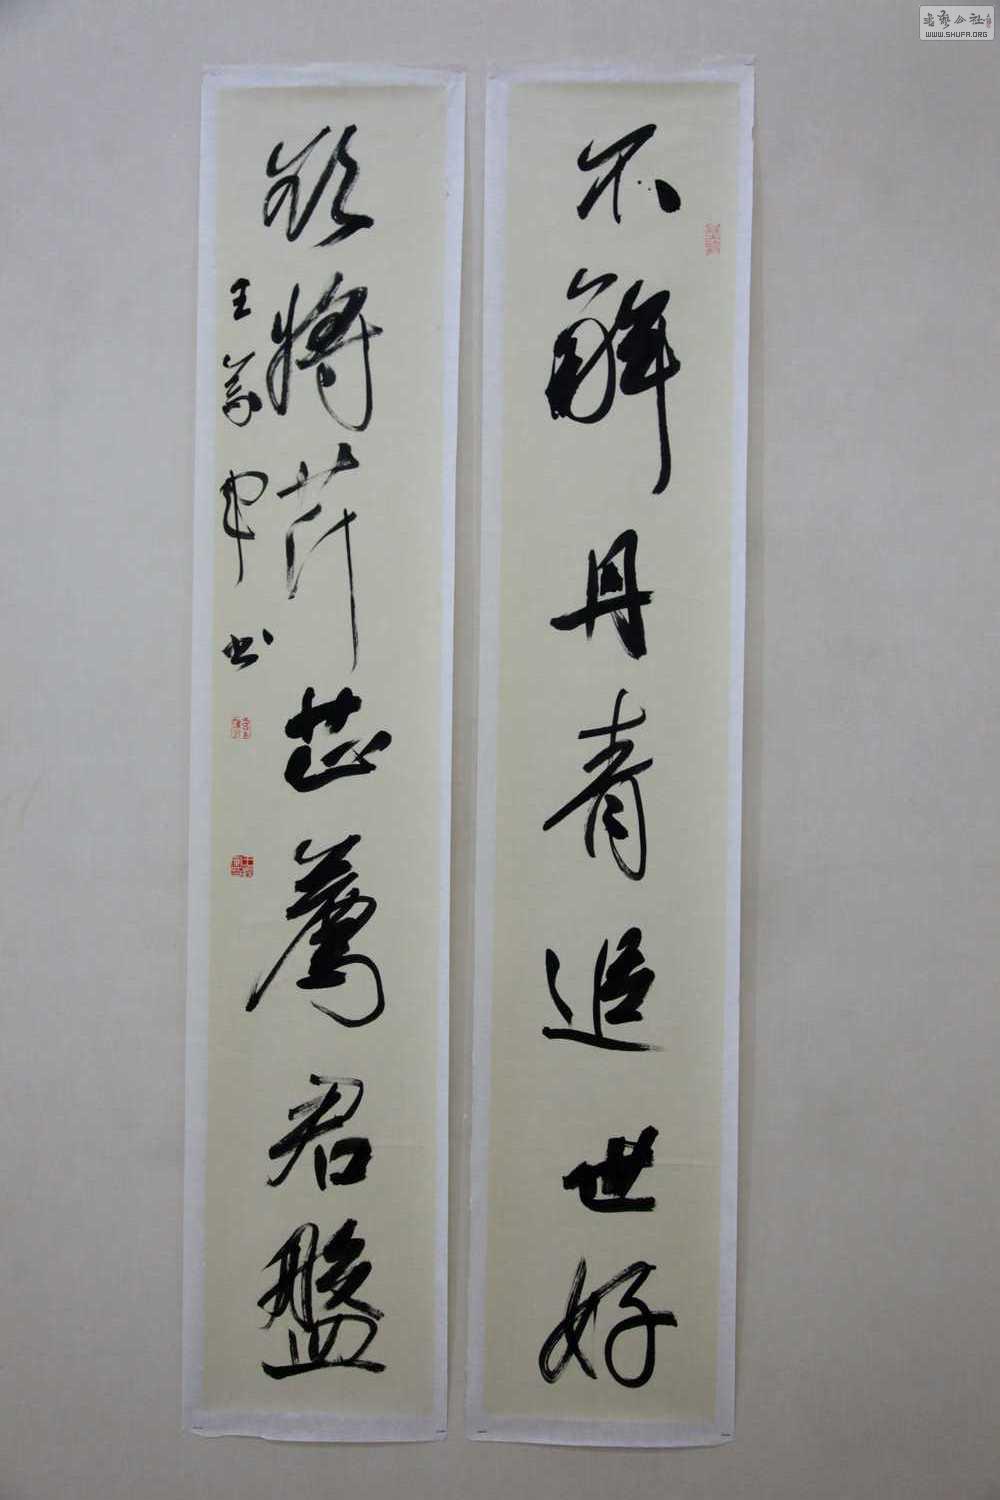 不解丹青追世好
欲将芹芷荐君盘
王 军书
书艺公社
WWW.SHUFA.ORG